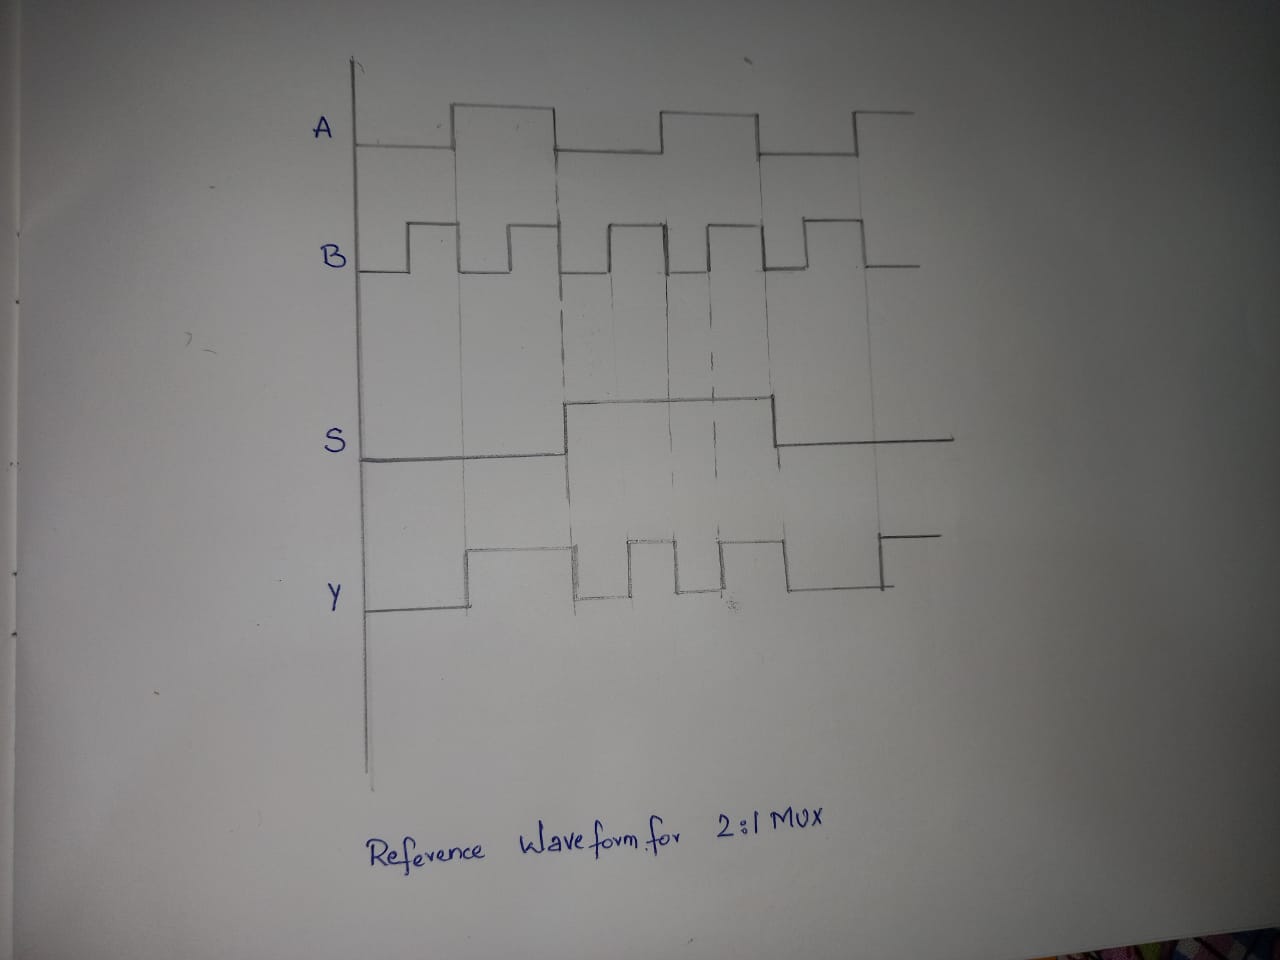 A
B
S
Y
Reference Waveform for 2:1 MUX